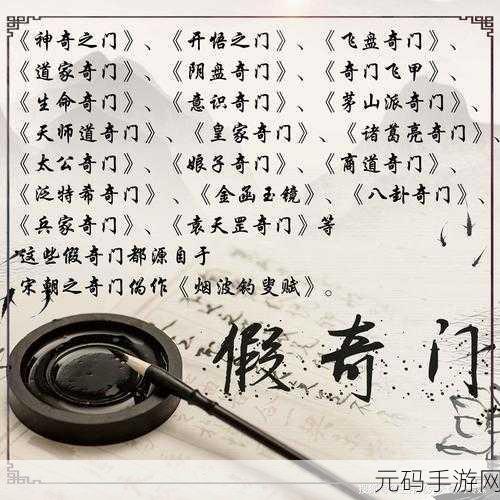 《神奇之门》、《开悟之门》、《飞盘奇门》、
《道家奇门》、《阴盘奇门》、《奇门飞甲》、
《生命奇门》、《意识奇门》、《茅山派奇门》、
《天师道奇门》、《皇家奇门》、《诸葛亮奇门》、
《太公奇门》、《娘子奇门》、《商道奇门》、
《泛特希奇门》、《金函玉镜》、《八卦奇门》、
《兵家奇门》、《袁天罡奇门》等
这些假奇门都源自于
宋朝之奇门伪作《烟波钓叟赋》。
假奇门
元码手游网